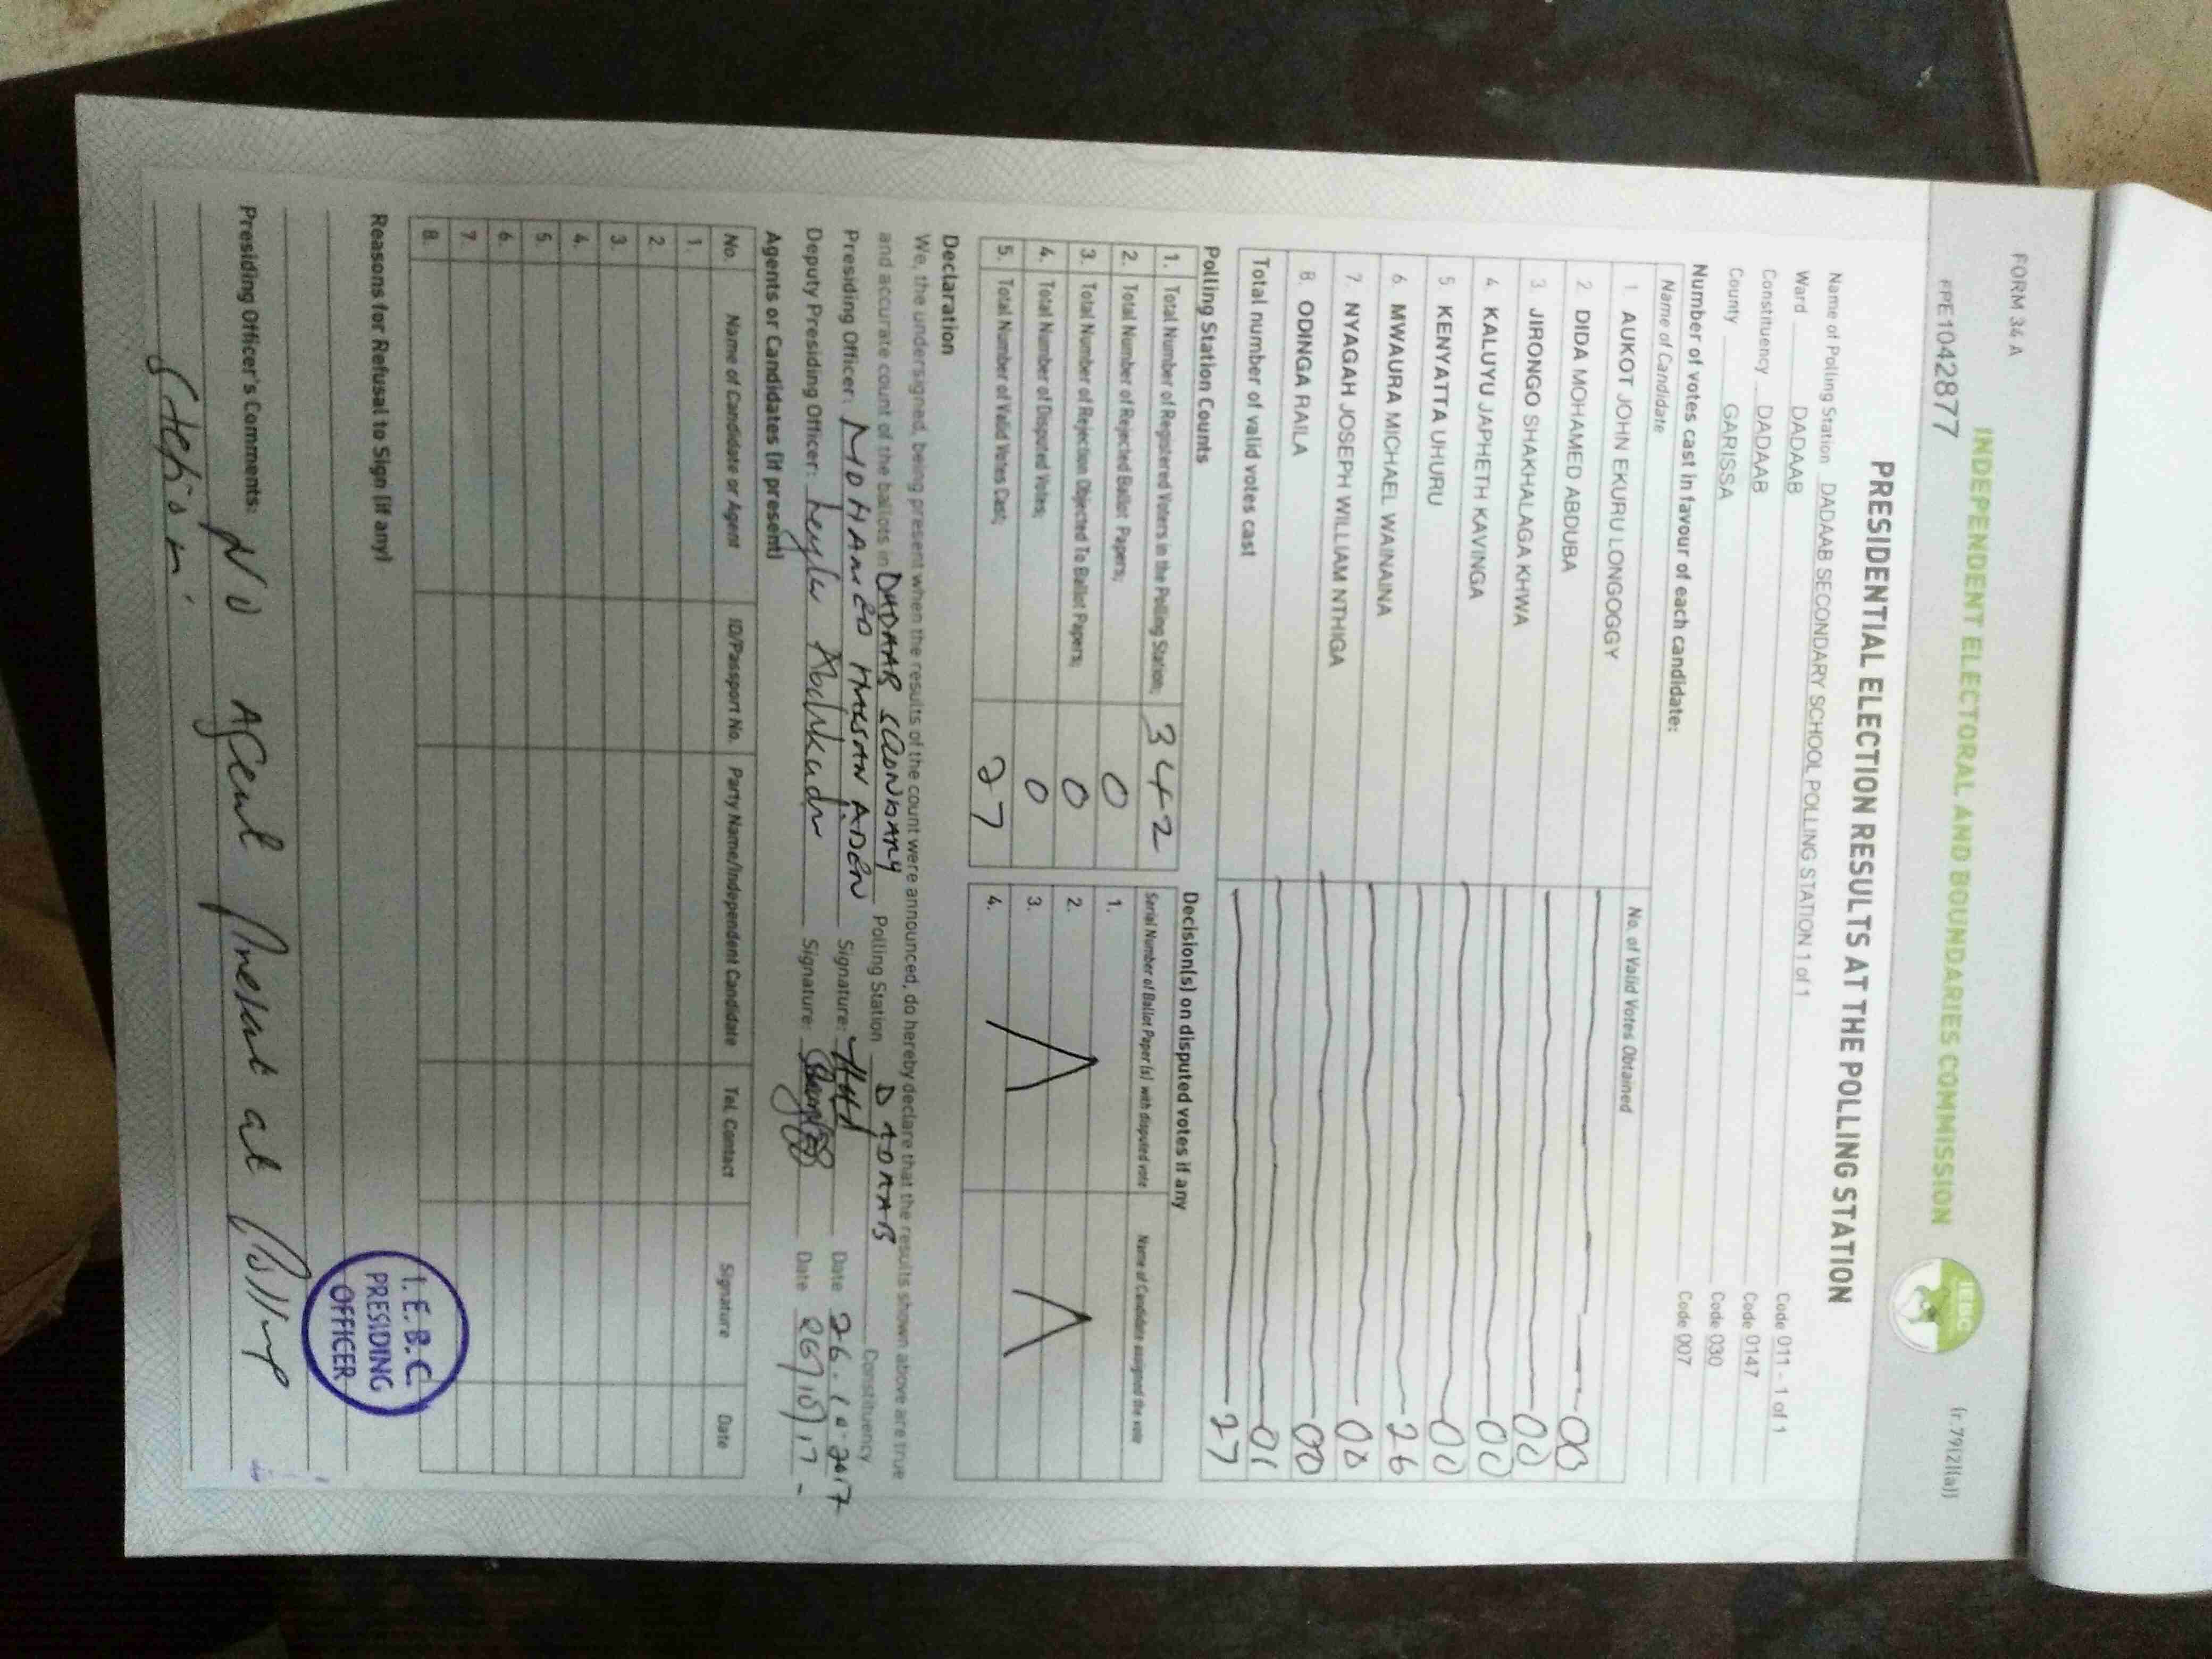 FORM 34 A
(r.79(2)(a))
INDEPENDENT ELECTORAL AND BOUNDARIES COMMISSION
IEBC
PPE1042877
PRESIDENTIAL ELECTION RESULTS AT THE POLLING STATION
Name of Polling Station DADAAB SECONDARY SCHOOL POLLING STATION 1 of 1 Code 011 - 1 of 1
Ward DADAAB Code 0147
Constituency DADAAB Code 030
County GARISSA Code 007
Number of votes cast in favour of each candidate:
Name of Candidate No. of Valid Votes Obtained
1. AUKOT JOHN EKURU LONGOGGY 00
2 DIDA MOHAMED ABDUBA 00
3. JIRONGO SHAKHALAGA KHWA 00
4 KALUYU JAPHETH KAVINGA 00
5 KENYATTA UHURU 26
6 MWAURA MICHAEL WAINAINA 00
7. NYAGAH JOSEPH WILLIAM NTHIGA 00
8. ODINGA RAILA 01
Total number of valid votes cast 27
Polling Station Counts
1. Total Number of Registered Voters in the Polling Station; 342
2. Total Number of Rejected Ballot Papers; 0
3. Total Number of Rejection Objected To Ballot Papers; 0
4. Total Number of Disputed Votes; 0
5. Total Number of Valid Votes Cast; 27
Decision(s) on disputed votes if any
Serial Number of Ballot Paper (s) with disputed vote Name of Candidate assigned the vote
1.
2.
3.
4.
Declaration
We, the undersigned, being present when the results of the count were announced, do hereby declare that the results shown above are true
and accurate count of the ballots in DADAAB SCONDARY Polling Station DADAAB Constituency
Presiding Officer: MOHAMED HASSAN ADEN Signature: Date 26.10.2017
Deputy Presiding Officer: Signature: Date 26/10/17
Agents or Candidates (if present)
No. Name of Candidate or Agent ID/Passport No. Party Name/Independent Candidate Tel. Contact Signature Date
1.
2.
3.
4.
5.
6.
7.
8.
Reasons for Refusal to Sign (if any)
I.E.B.C
PRESIDING
OFFICER
Presiding Officer's Comments: No Agent Present at Polling
Station.